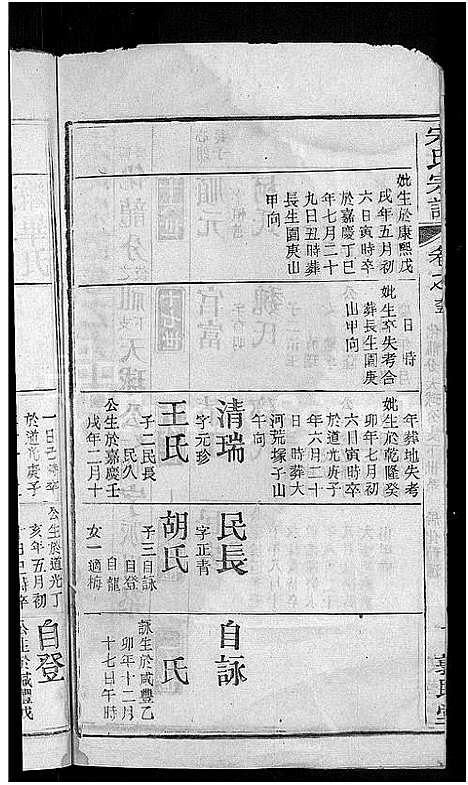 宋氏宗譜
卷之
妣生於康熙戊
戌年五月初
六日寅時卒
於嘉慶丁巳
年七月二十
九日丑時葬
長生園庚山
甲向
日時
妣生卒失考合
葬長生園庚
山甲向
年葬地失考
妣生於乾隆癸
卯年七月初
六日寅時卒
於道光庚子
年六月二十
日時葬大
河荒塚子山
午向
清瑞
字元珍
王氏
子二民長
民久
公生於嘉慶壬
戌年二月十
一日己時卒
於道光庚子
民長
字正青
胡氏
子三自詠
自登
自龍
女一適梅
公生於道光丁
亥年五月初
自詠
詠生於咸豐乙
卯年十二月
十七日午時
氏
自登
公生於咸豐戊